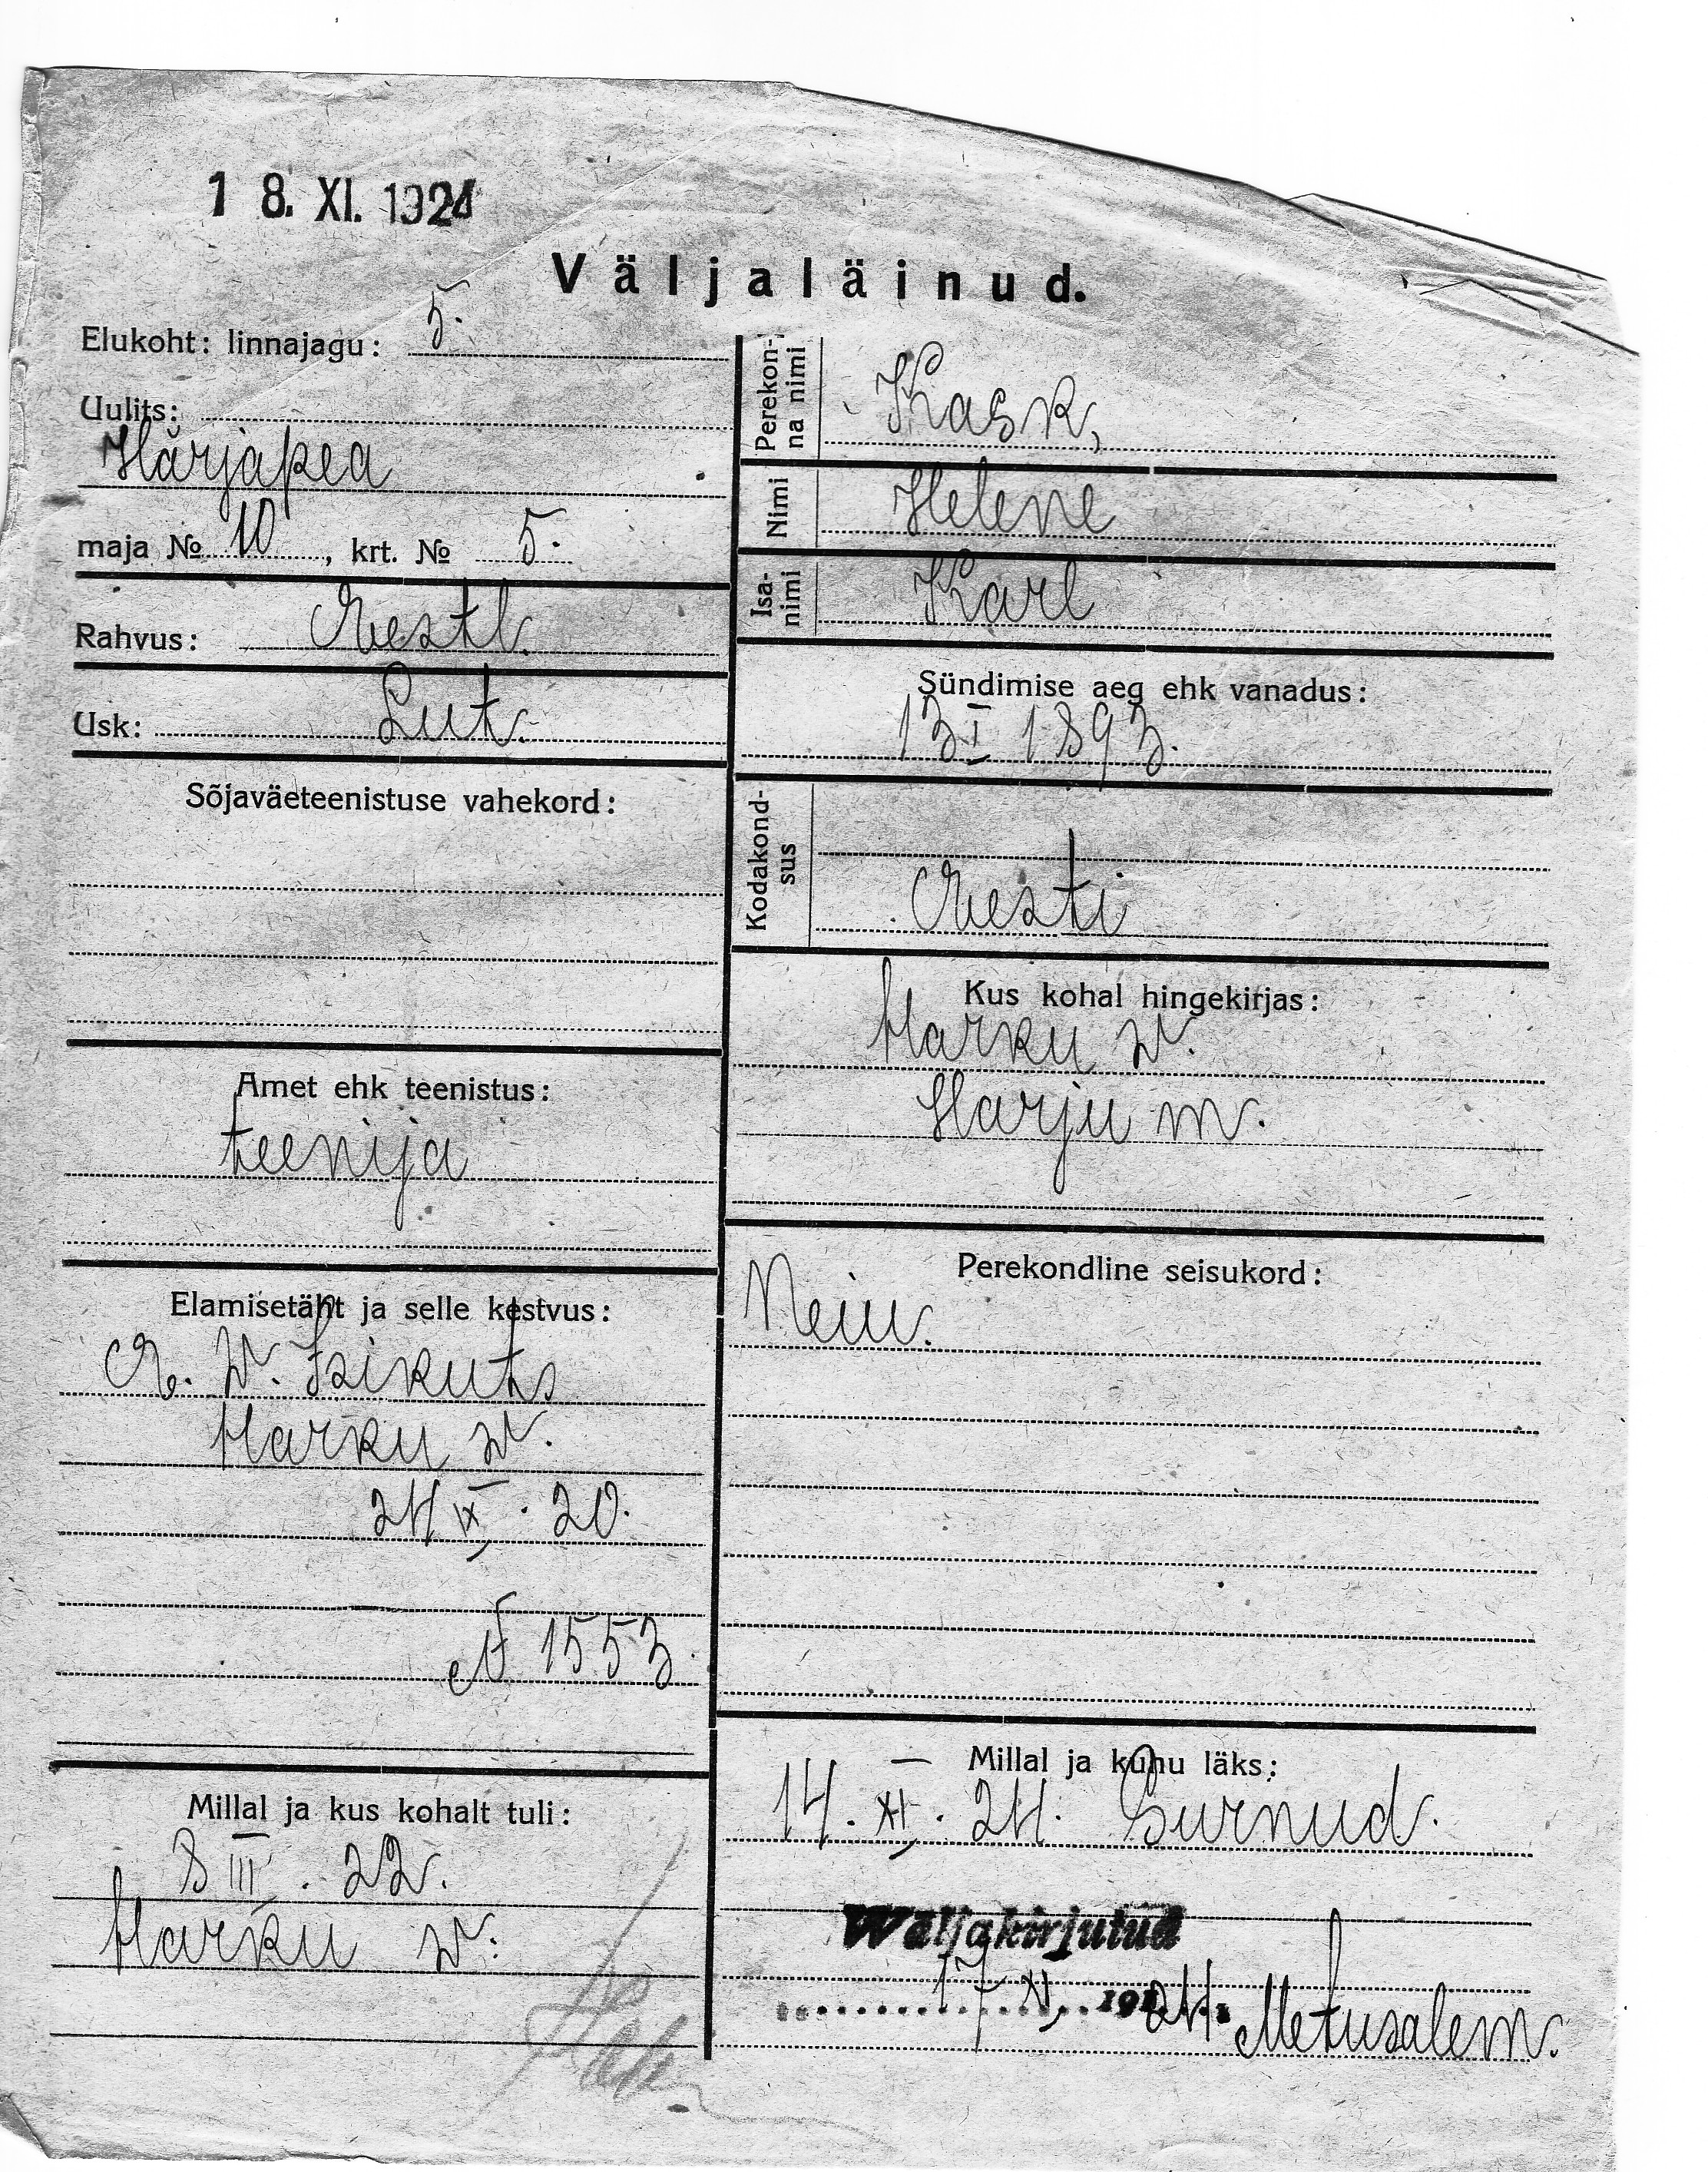 18. XI. 1924
Väljaläinud.
Elukoht: linnajagu: 5.
Uulits:
Härjapea
maja № 10, krt. № 5.
Rahvus: Eestl.
Usk: Lut.
Sõjaväeteenistuse vahekord:
Amet ehk teenistus:
teenija
Elamisetäht ja selle kestvus:
E. W. Isikuts
Harku w.
24 IX. 20.
N 1553.
Millal ja kus kohalt tuli:
8 III. 22.
Harku w.
Perekon-
na nimi
Kask,
Nimi
Helene
Isa-
nimi
Karl
Sündimise aeg ehk vanadus:
13 I 1893.
Kodakond-
sus
Eesti
Kus kohal hingekirjas:
Harku w.
Harju m.
Perekondline seisukord:
Neiu.
Millal ja kuhu läks:
14. XI. 24. Surnud.
Wäljakirjutud
17 XI 24. Metusalem.